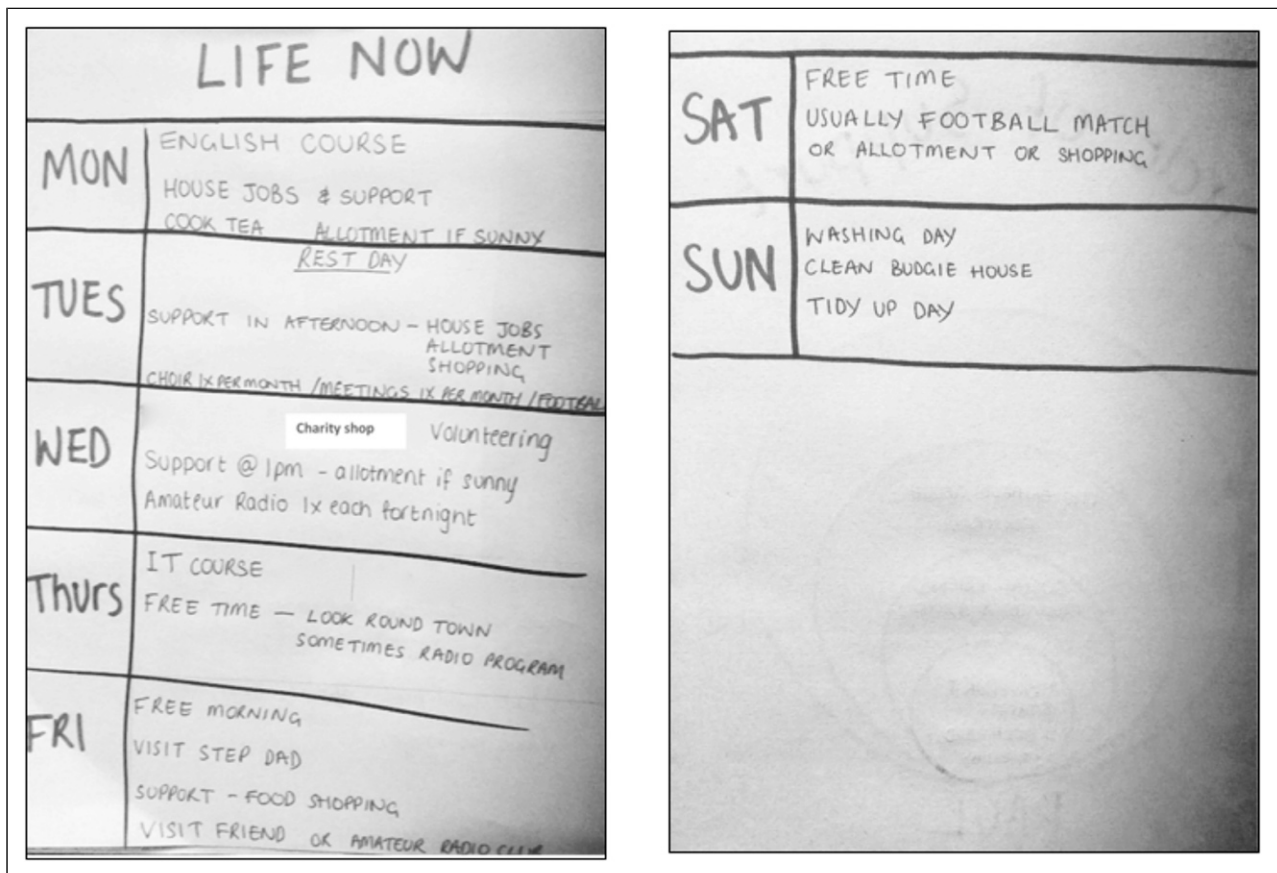 LIFE NOW
MON
ENGLISH COURSE
HOUSE JOBS & SUPPORT
COOK TEA ALLOTMENT IF SUNNY
TUES
REST DAY
SUPPORT IN AFTERNOON - HOUSE JOBS
ALLOTMENT
SHOPPING
CHOIR 1X PER MONTH / MEETINGS 1X PER MONTH / FOOTBAL
WED
Charity shop Volunteering
Support @ 1pm - allotment if sunny
Amateur Radio 1x each fortnight
Thurs
IT COURSE
FREE TIME - LOOK ROUND TOWN
SOMETIMES RADIO PROGRAM
FRI
FREE MORNING
VISIT STEP DAD
SUPPORT - FOOD SHOPPING
VISIT FRIEND OR AMATEUR RADIO CLUB
SAT
FREE TIME
USUALLY FOOTBALL MATCH
OR ALLOTMENT OR SHOPPING
SUN
WASHING DAY
CLEAN BUDGIE HOUSE
TIDY UP DAY